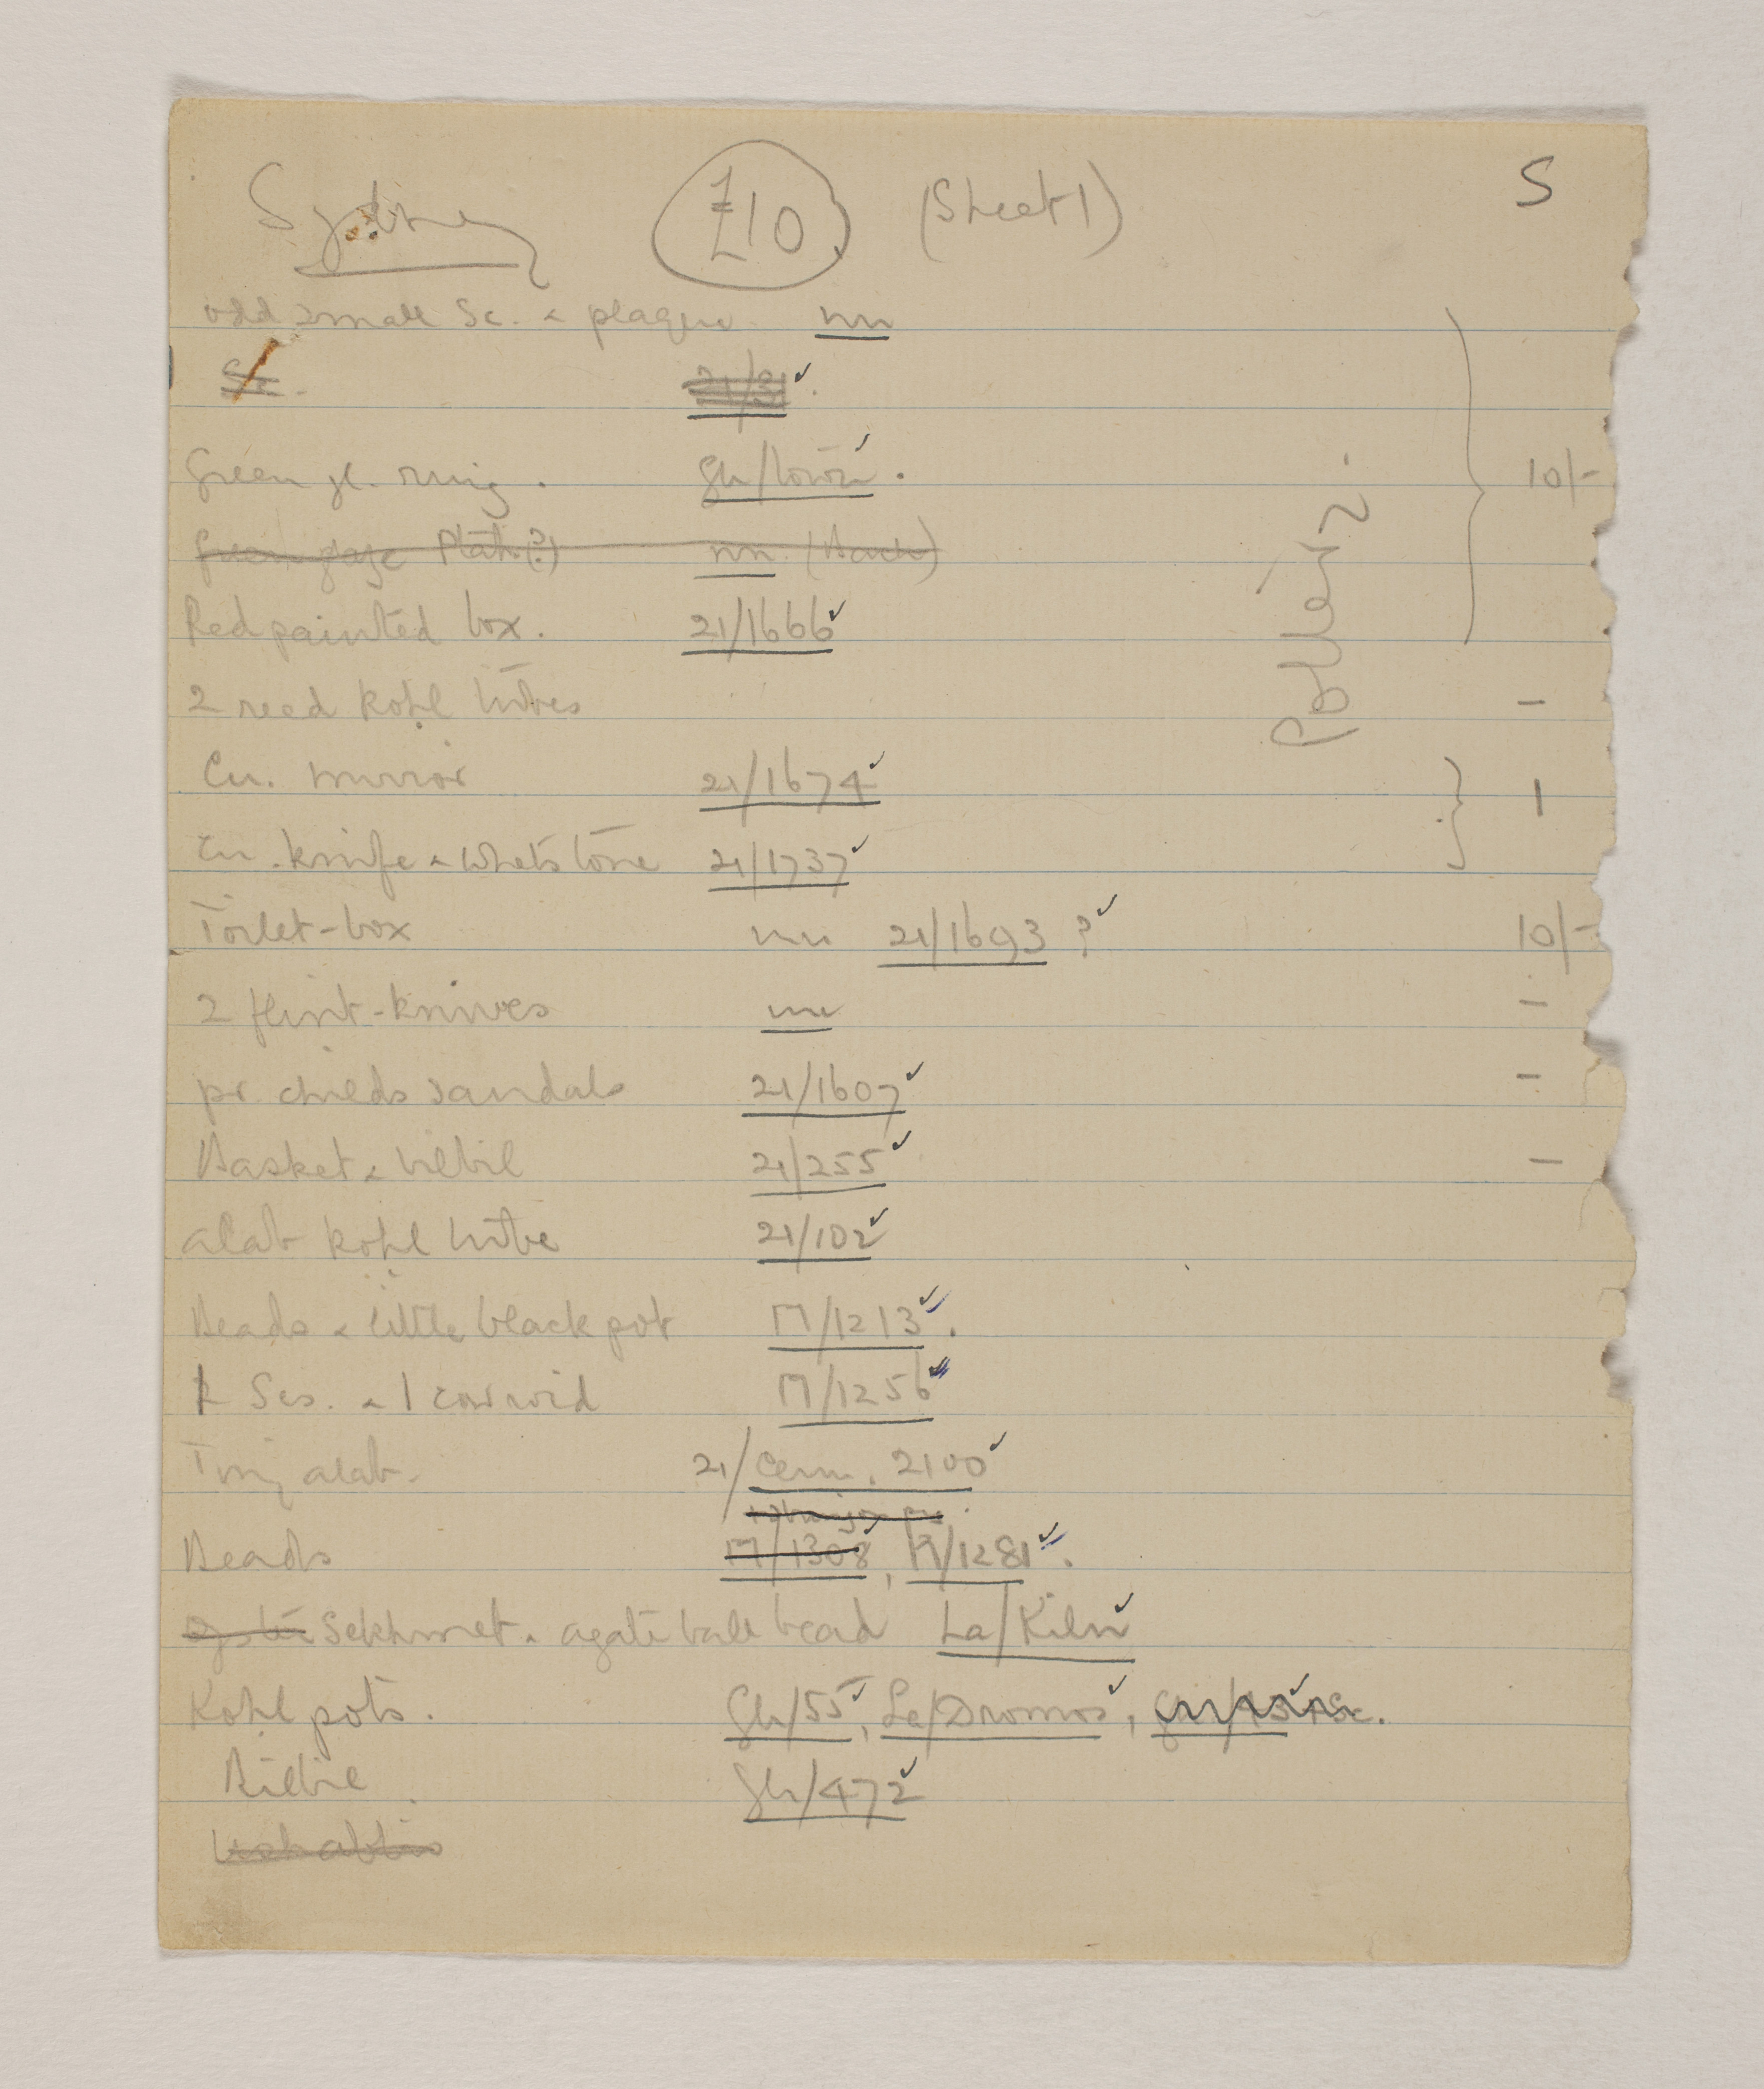 Sydney £10 (Sheet 1) S
odd small Sc. & plaque nn
Sc. 21/31
Green gl. ring. Gh/town. 10/-
Green glaze Plah.(?) nn (Back)
Red painted box. 21/1666
Pottery.
2 reed kohl tubes –
Cu. mirror 21/1674 1
Cu. knife & whetstone 21/1737
Toilet-box nn 21/1693 ? 10/-
2 flint-knives nn –
pr. childs sandals 21/1607 –
Basket & bilbil 21/255 –
alab kohl tube 21/102
Beads & little black pot M/1213.
Scs. & 1 cowroid M/1256
Tiny alab. 21/Cem. 2100
Beads M/1308, M/1281.
Sekhmet & agate ball bead La/Kiln
Kohl pots. Gh/55, La/Dromos,
Bilbil Gh/472
Ushabtis